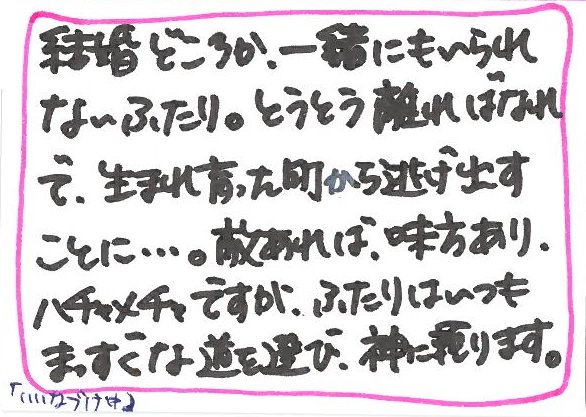 結婚どころか、一緒にもいられ
ないふたり。とうとう離ればなれ
で、生まれ育った町から逃げ出す
ことに…。敵あれば、味方あり、
ハチャメチャですが、ふたりはいつも
まっすぐな道を選び、神に頼ります。
「いいなづけ中」